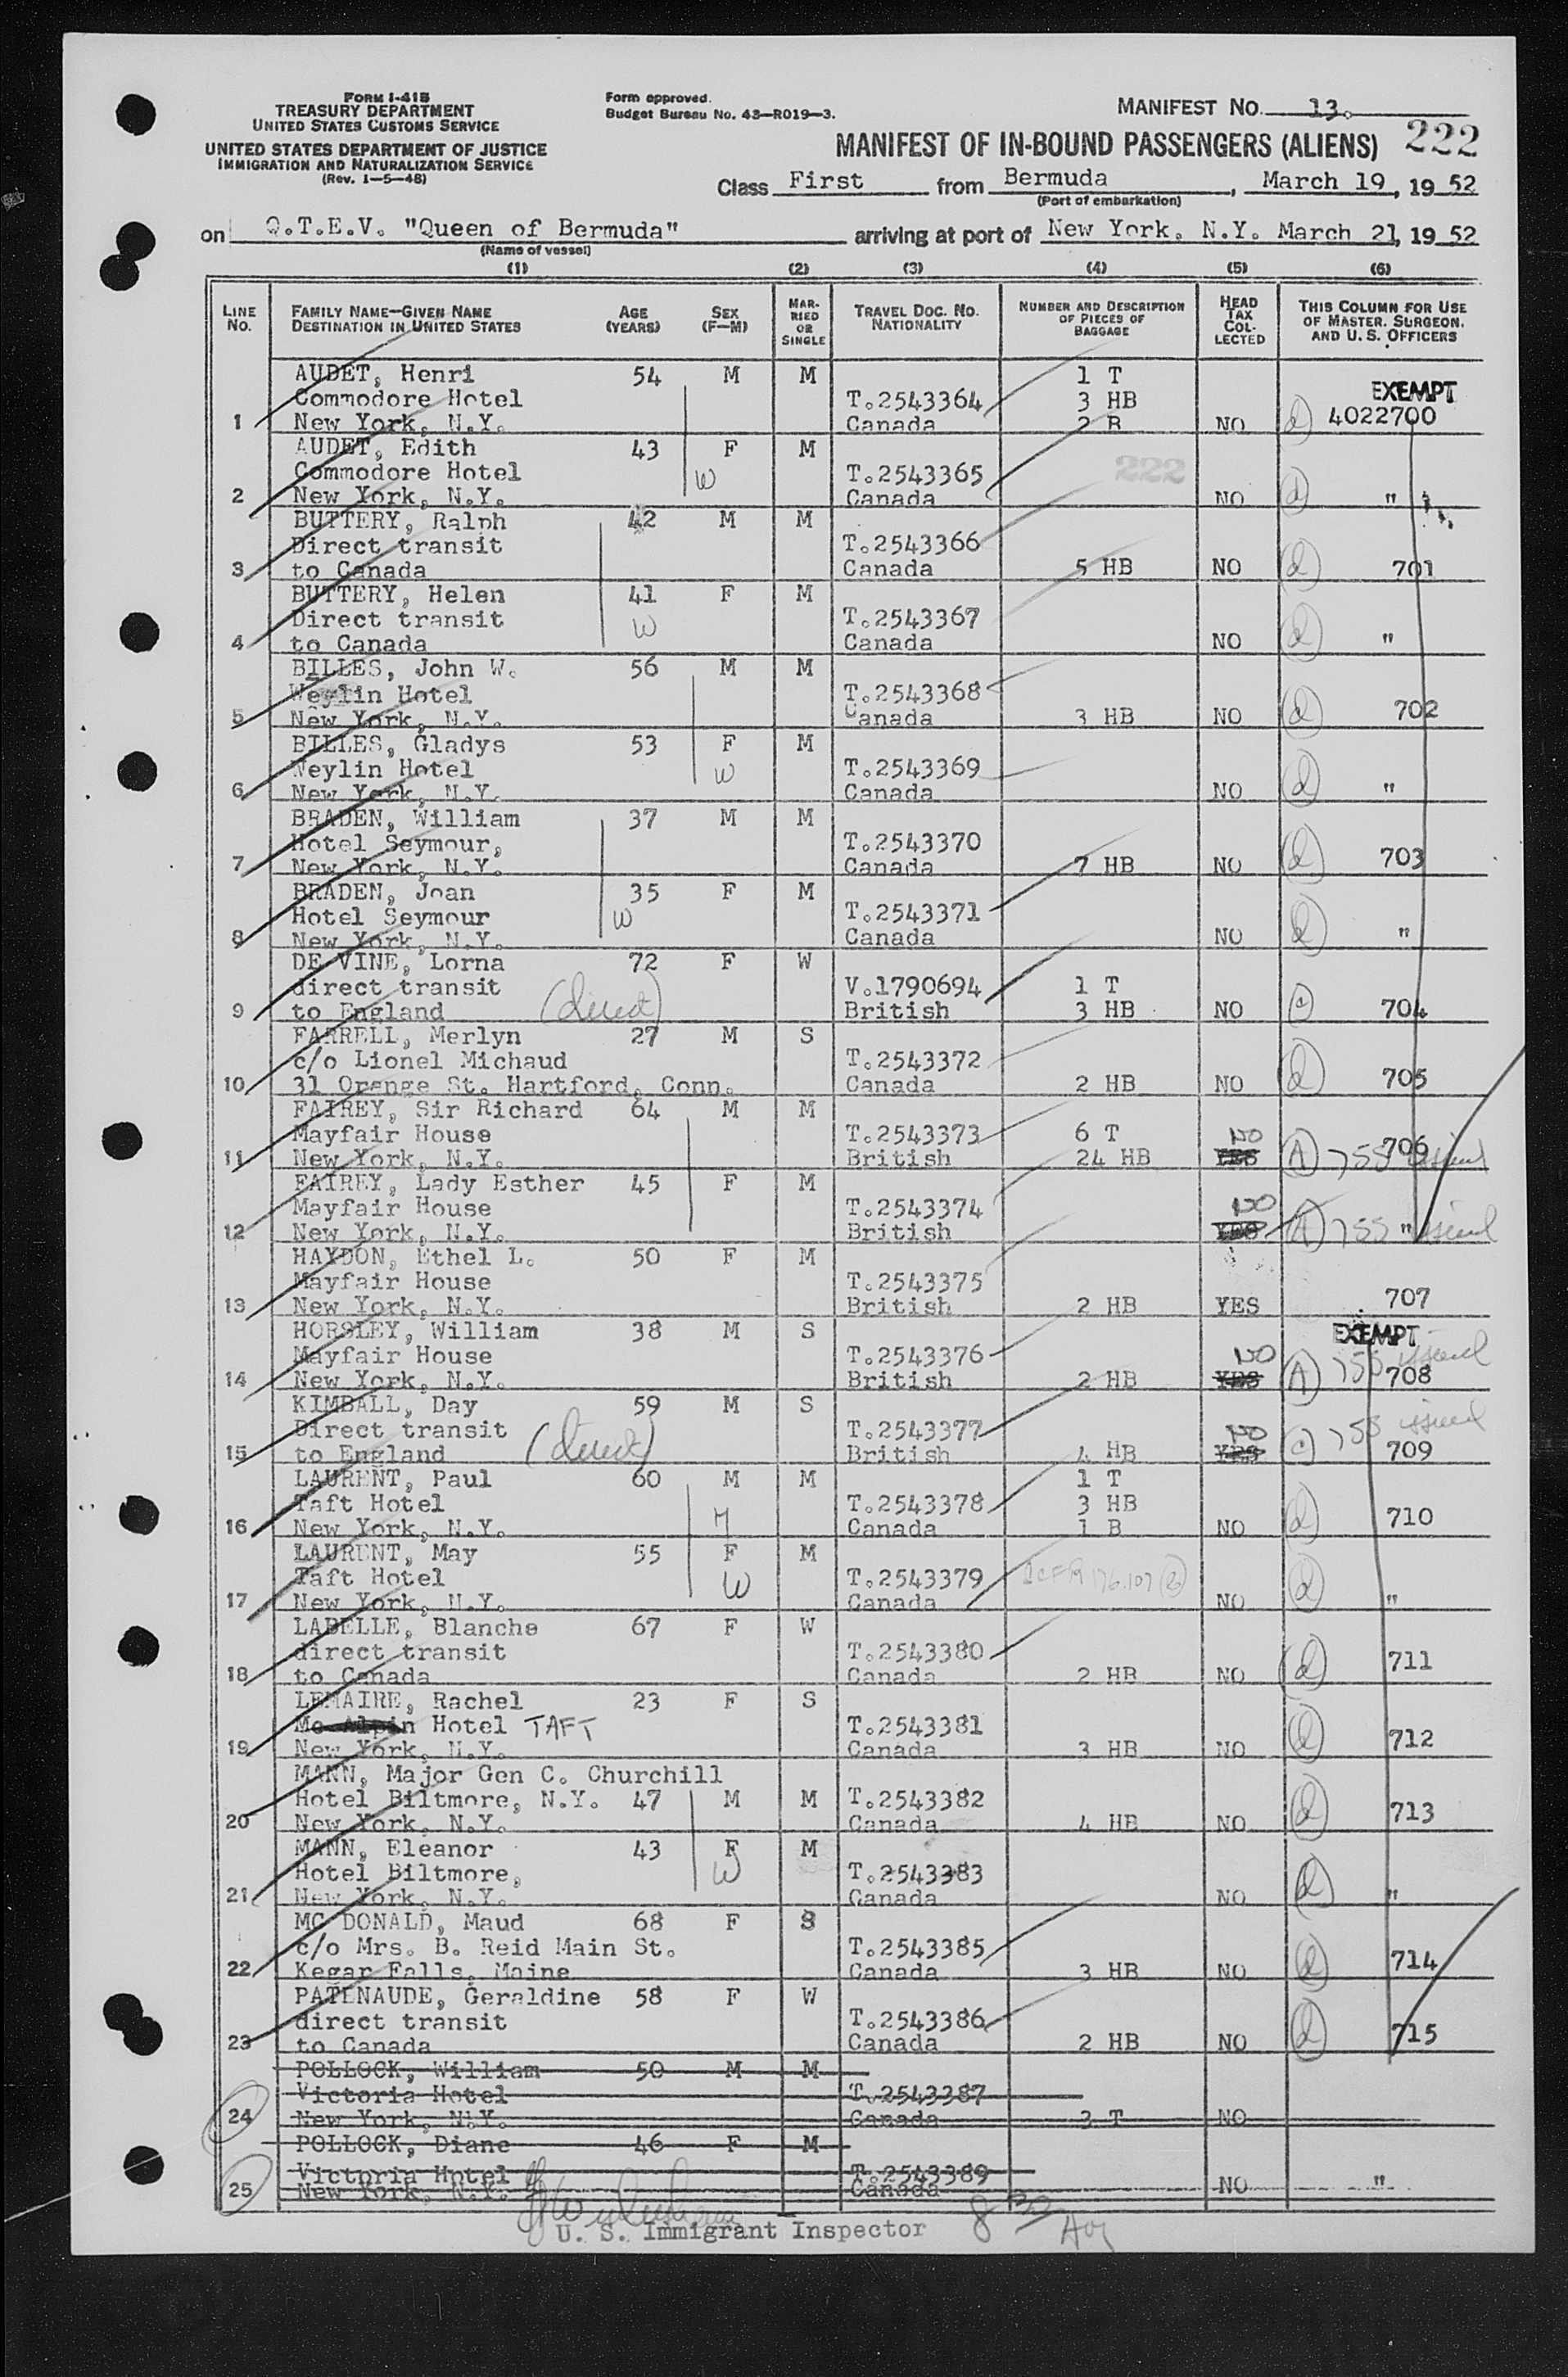 FORM I-415
TREASURY DEPARTMENT
UNITED STATES CUSTOMS SERVICE
UNITED STATES DEPARTMENT OF JUSTICE
IMMIGRATION AND NATURALIZATION SERVICE
(Rev. 1-5-48)
Form approved.
Budget Bureau No. 43-R019-3.
MANIFEST NO. 13.
222
MANIFEST OF IN-BOUND PASSENGERS (ALIENS)
Class First from Bermuda, March 19, 1952
(Port of embarkation)
on Q.T.E.V. "Queen of Bermuda" arriving at port of New York. N.Y. March 21, 1952
(Name of vessel)
(1) (2) (3) (4) (5) (6)
LINE No. FAMILY NAME—GIVEN NAME DESTINATION IN UNITED STATES AGE (YEARS) SEX (F—M) MARRIED OR SINGLE TRAVEL DOC. NO. NATIONALITY NUMBER AND DESCRIPTION OF PIECES OF BAGGAGE HEAD TAX COLLECTED THIS COLUMN FOR USE OF MASTER, SURGEON, AND U. S. OFFICERS
AUDET, Henri 54 M M 1 T EXEMPT
Commodore Hotel T.2543364 3 HB
1 New York, N.Y. Canada 2 B NO d 4022700
AUDET, Edith 43 F M
Commodore Hotel W T.2543365 222
2 New York, N.Y. Canada NO d "
BUTTERY, Ralph 42 M M
Direct transit T.2543366
3 to Canada Canada 5 HB NO d 701
BUTTERY, Helen 41 F M
Direct transit W T.2543367
4 to Canada Canada NO d "
BILLES, John W. 56 M M
Weylin Hotel T.2543368
5 New York, N.Y. Canada 3 HB NO d 702
BILLES, Gladys 53 F M
Weylin Hotel W T.2543369
6 New York, N.Y. Canada NO d "
BRADEN, William 37 M M
Hotel Seymour, T.2543370
7 New York, N.Y. Canada 7 HB NO d 703
BRADEN, Joan 35 F M
Hotel Seymour W T.2543371
8 New York, N.Y. Canada NO d "
DE VINE, Lorna 72 F W
direct transit V.1790694 1 T
9 to England (direct) British 3 HB NO c 704
FARRELL, Merlyn 27 M S
c/o Lionel Michaud T.2543372
10 31 Orange St. Hartford, Conn. Canada 2 HB NO d 705
FAIREY, Sir Richard 64 M M
Mayfair House T.2543373 6 T NO
11 New York, N.Y. British 24 HB YES A 706 755 issued
FAIREY, Lady Esther 45 F M
Mayfair House T.2543374 NO
12 New York, N.Y. British YES A 755 " issued
HAYDON, Ethel L. 50 F M
Mayfair House T.2543375
13 New York, N.Y. British 2 HB YES 707
HORSLEY, William 38 M S EXEMPT
Mayfair House T.2543376 NO 755 issued
14 New York, N.Y. British 2 HB YES A 708
KIMBALL, Day 59 M S
Direct transit T.2543377 NO 755 issued
15 to England (direct) British 4 HB YES c 709
LAURENT, Paul 60 M M 1 T
Taft Hotel H T.2543378 3 HB
16 New York, N.Y. Canada 1 B NO d 710
LAURENT, May 55 F M
Taft Hotel W T.2543379
17 New York, N.Y. Canada NO d "
LABELLE, Blanche 67 F W
direct transit T.2543380
18 to Canada Canada 2 HB NO d 711
LEMAIRE, Rachel 23 F S
Mc Alpin Hotel TAFT T.2543381
19 New York, N.Y. Canada 3 HB NO d 712
MANN, Major Gen C. Churchill
Hotel Biltmore, N.Y. 47 M M T.2543382
20 New York, N.Y. Canada 4 HB NO d 713
MANN, Eleanor 43 F M
Hotel Biltmore, W T.2543383
21 New York, N.Y. Canada NO d "
MC DONALD, Maud 68 F S
c/o Mrs. B. Reid Main St. T.2543385
22 Kegar Falls, Maine Canada 3 HB NO d 714
PATENAUDE, Geraldine 58 F W
direct transit T.2543386
23 to Canada Canada 2 HB NO d 715
POLLOCK, William 50 M M
Victoria Hotel T.2543387
24 New York, N.Y. Canada 3 T NO
POLLOCK, Diane 46 F M
Victoria Hotel T.2543389
25 New York, N.Y. Canada NO "
U. S. Immigrant Inspector